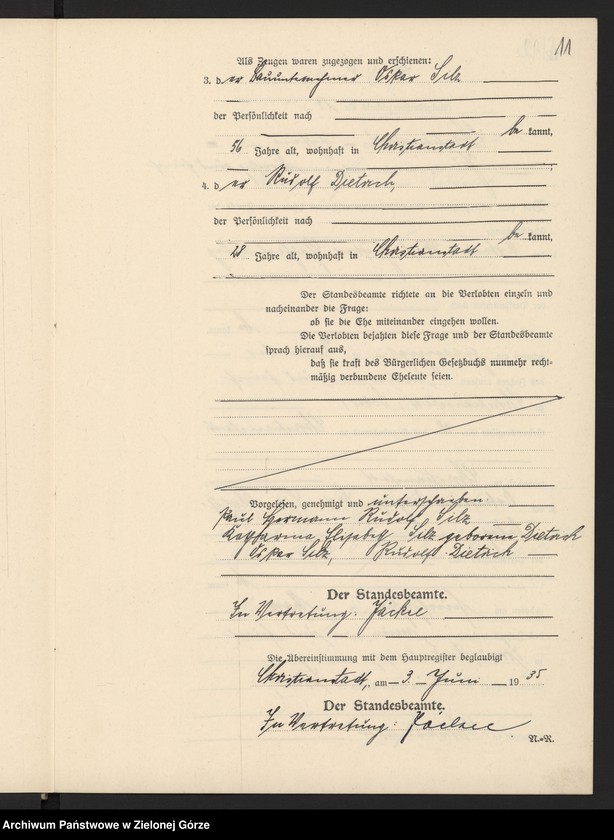 11
Als Zeugen waren zugezogen und erschienen:
3. der Bauunternehmer Oskar Selz
der Persönlichkeit nach
bekannt,
56 Jahre alt, wohnhaft in Christianstadt
4. der Rudolf Dietrich,
der Persönlichkeit nach
bekannt,
28 Jahre alt, wohnhaft in Christianstadt
Der Standesbeamte richtete an die Verlobten einzeln und
nacheinander die Frage:
ob sie die Ehe miteinander eingehen wollen.
Die Verlobten bejahten diese Frage und der Standesbeamte
sprach hierauf aus,
daß sie kraft des Bürgerlichen Gesetzbuchs nunmehr recht-
mäßig verbundene Eheleute seien.
Vorgelesen, genehmigt und unterschrieben.
Paul Hermann Rudolf Selz
Katharina Elisabeth Selz geborene Dietrich
Oskar Selz, Rudolf Dietrich
Der Standesbeamte.
In Vertretung: Jäckel
Die Übereinstimmung mit dem Hauptregister beglaubigt
Christianstadt, am 3. Juni 1935
Der Standesbeamte.
In Vertretung: Jäckel
N.-R.
Archiwum Państwowe w Zielonej Górze